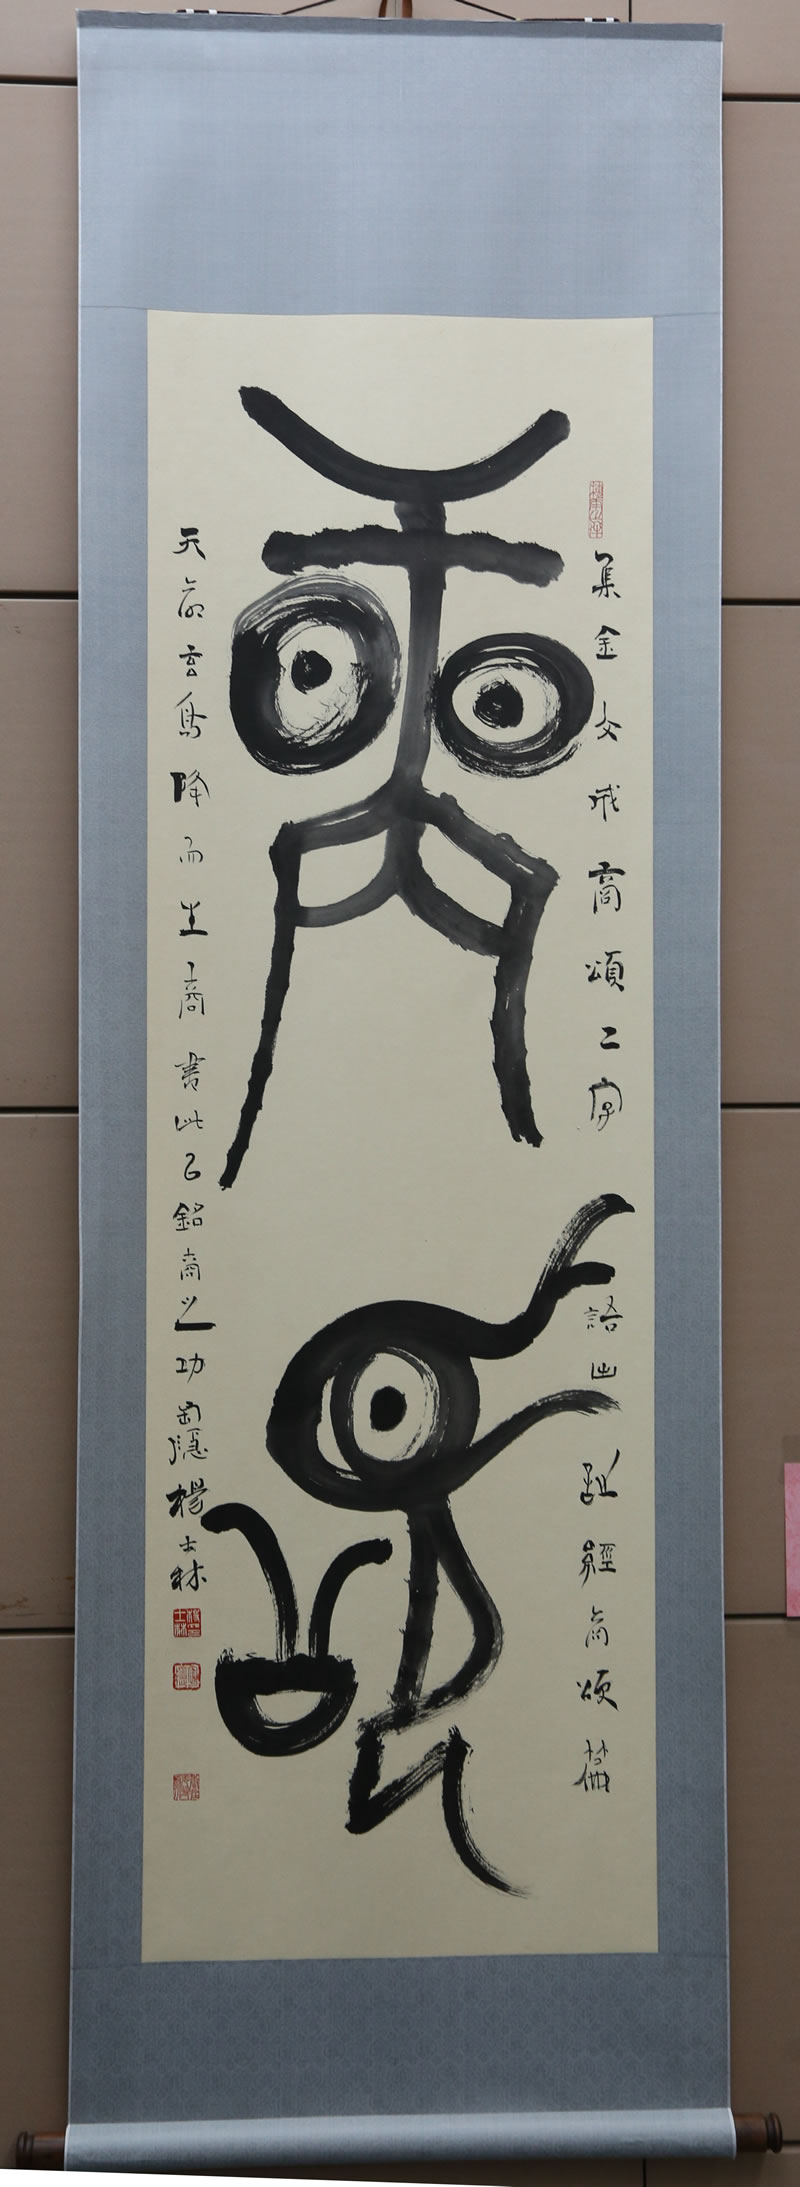 商頌
集金文成商頌二字
語出詩經商頌篇
天命玄鳥降而生商書此以銘商之功
隱楊士林